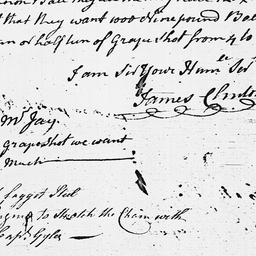 that they want 1000 Nine pound Ball
an or half Tun of Grape Shot from 4 to
I am Sir Your Hum.le Ser
James Clinto
Mr Jay
grape shot we want
Much
faggot Steel
to Stretch the Chain with
Cap.t